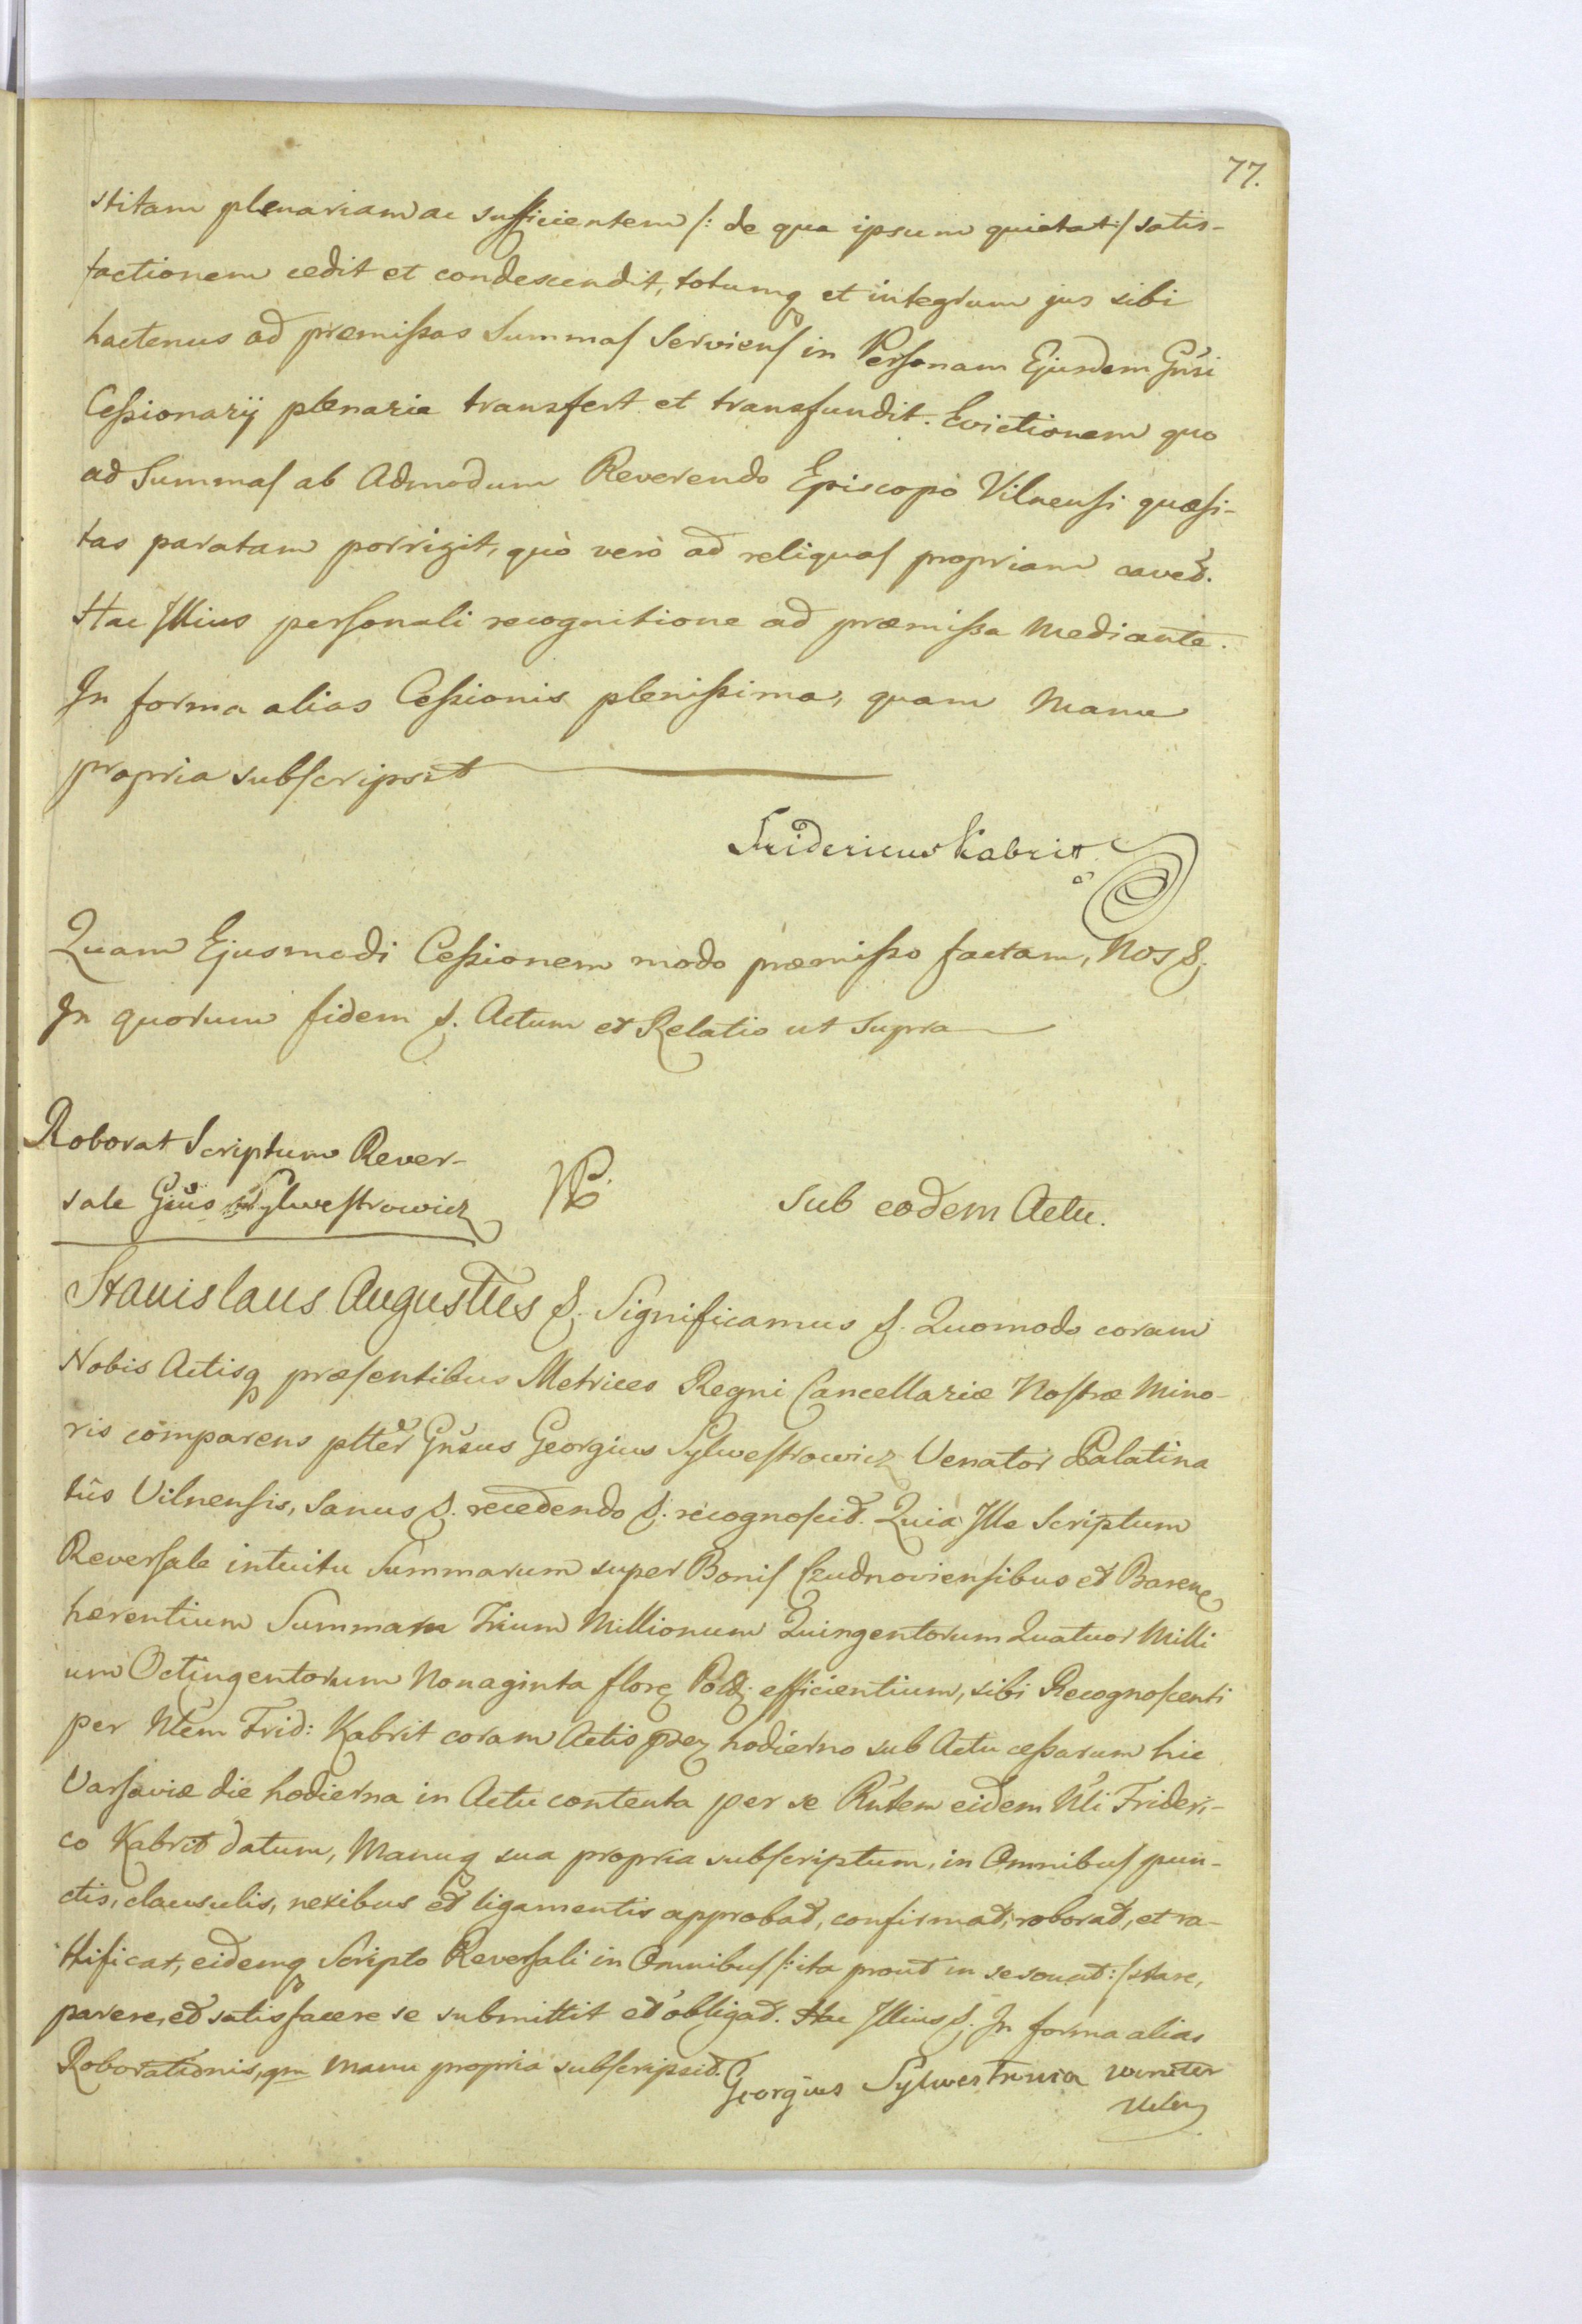 77.
stitam plenariam ac sufficientem /: de qua ipsum quietat :/ satis-
factionem cedit et condescendit, totumq et integrum jus sibi
hactenus ad præmissas Summas Serviens in Personam Ejusdem Gnsi
Cessionarij plenarie transfert et transfundit. Evictionem quo
ad Summas ab Admodum Reverendo Episcopo Vilnensi quæsi-
tas paratam porrigit, quò verò ad reliquas propriam cavet.
Hac Illius personali recognitione ad præmissa Mediante.
In forma alias Cessionis plenissima, quam Manu
propria subscripsit
Fridericus Kabrit
Quam Ejusmodi Cessionem modo præmisso factam, Nos &.
In quorum fidem &. Actum et Relatio ut Supra
Roborat Scriptum Rever-
sale Gnsus Sylwestrowicz
Sub eodem Actu.
Stanislaus Augustus &. Significamus &. Quomodo coram
Nobis Actisq præsentibus Metrices Regni Cancellariæ Nostræ Mino-
ris comparens plter Gnsus Georgius Sylwestrowicz Venator Palatina
tûs Vilnensis, Sanus &. recedendo &. recognoscit. Quia Ille Scriptum
Reversale intuitu Summarum super Bonis Czudnoviensibus et Baren
hærentium Summam Trium Millionum Quingentorum Quatuor Milli
um Octingentorum Nonaginta flor Pol efficientium, sibi Recognoscenti
per Nlem Frid: Kabrit coram Actis præz hodierno sub Actu cessarum hic
Varsaviæ die hodierna in Actu contenta per se Rntem eidem Nli Frideri-
co Kabrit datum, Manuq sua propria subscriptum, in Omnibus pun-
ctis, clausulis, nexibus et ligamentis approbat, confirmat, roborat, et ra-
tificat, eidemq Scripto Reversali in Omnibus /: ita prout in se sonat :/ stare,
parere, et satisfacere se submittit et obligat. Hac Illius &. In forma alias
Roborationis, qm Manu propria subscripsit.
Georgius Sylwestrowicz